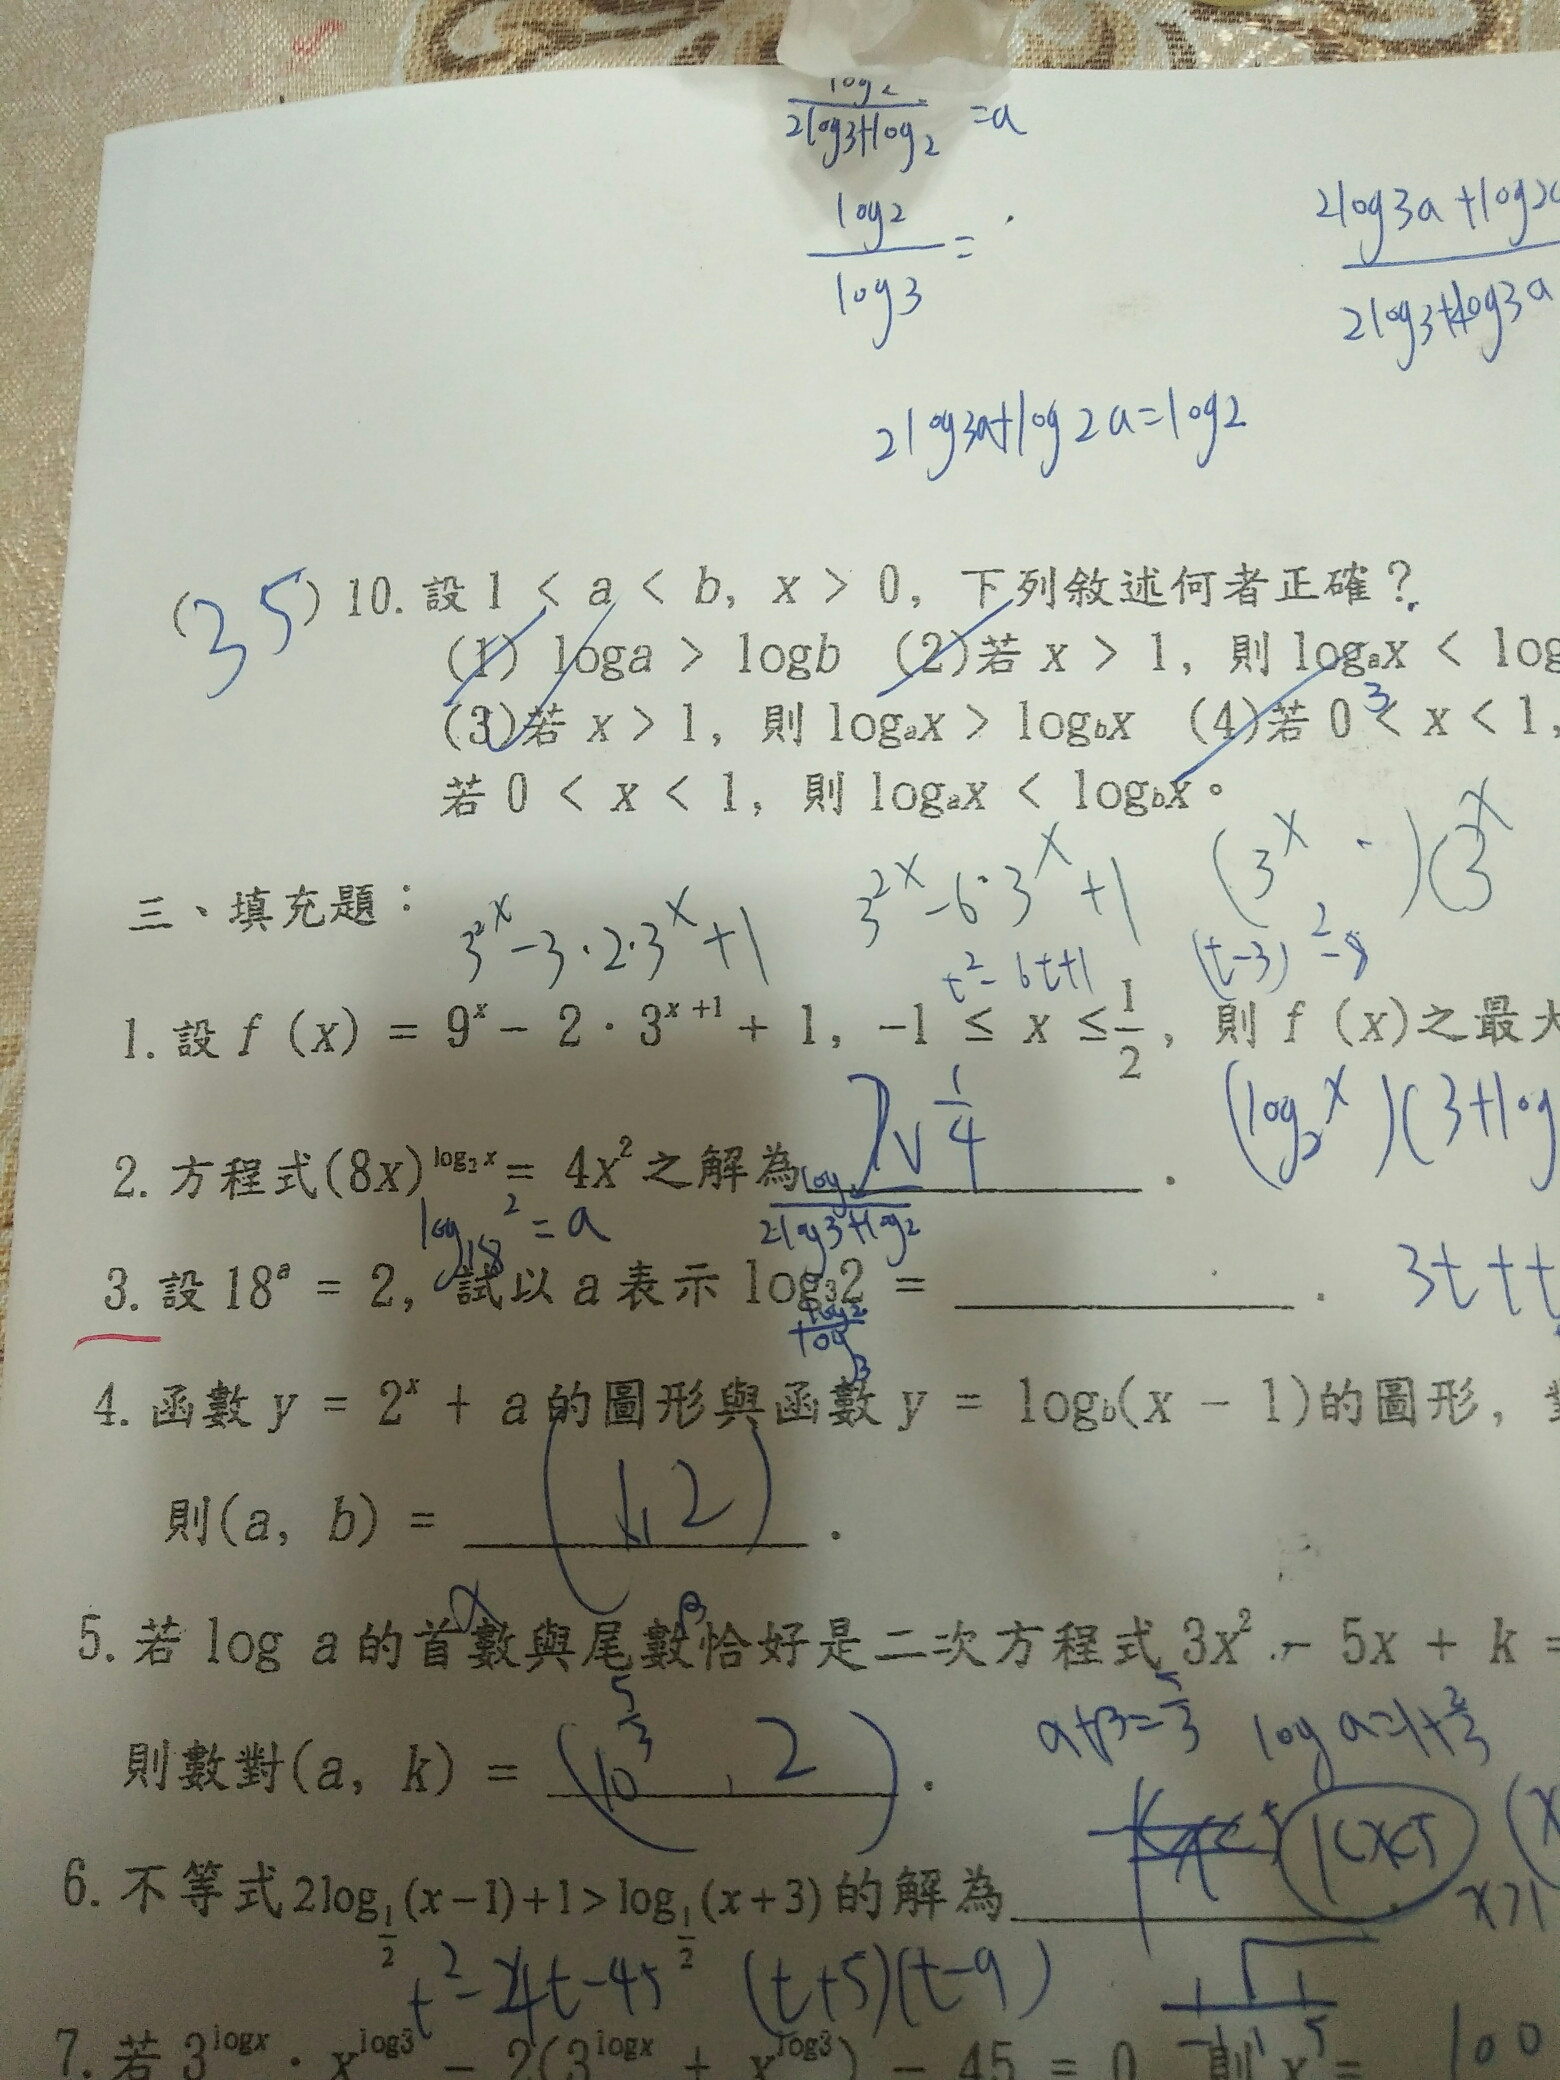 log2
2log3+log2 =a
log2
log3 =
2log3a+log2a
2log3+log3a
2log3a+log2a=log2
(35) 10. 設 1 < a < b, x > 0, 下列敘述何者正確?
(1) loga > logb (2)若 x > 1, 則 logₐx < log
(3)若 x > 1, 則 logₐx > log_bx (4)若 0 < x < 1,
3
若 0 < x < 1, 則 logₐx < log_bx。
三、填充題:
3²ˣ-3·2·3ˣ+1
3²ˣ-6·3ˣ+1
(3ˣ - )(3ˣ
t²-6t+1
(t-3)²-8
1. 設 f (x) = 9ˣ - 2 · 3ˣ⁺¹ + 1, -1 ≤ x ≤ 1/2, 則 f (x)之最大
2√1/4
(log₂x)(3+log
2. 方程式(8x)^log₂x = 4x² 之解為 .
log₁₈2=a
2log3+log2
3. 設 18ᵃ = 2, 試以 a 表示 log₃2 = .
3t+t
log2
log3
4. 函數 y = 2ˣ + a 的圖形與函數 y = log_b(x - 1)的圖形,
則(a, b) = (1,2) .
α β
5. 若 log a 的首數與尾數恰好是二次方程式 3x² - 5x + k =
α+β=5/3 log a=1+2/3
則數對(a, k) = (10^5/3, 2) .
1<x<5 (x
6. 不等式 2log_1/2(x-1)+1>log_1/2(x+3) 的解為 .
x>1
t²-4t-45 (t+5)(t-9)
7. 若 3^logx · x^log3 - 2(3^logx + x^log3) - 45 = 0 則 x = 100